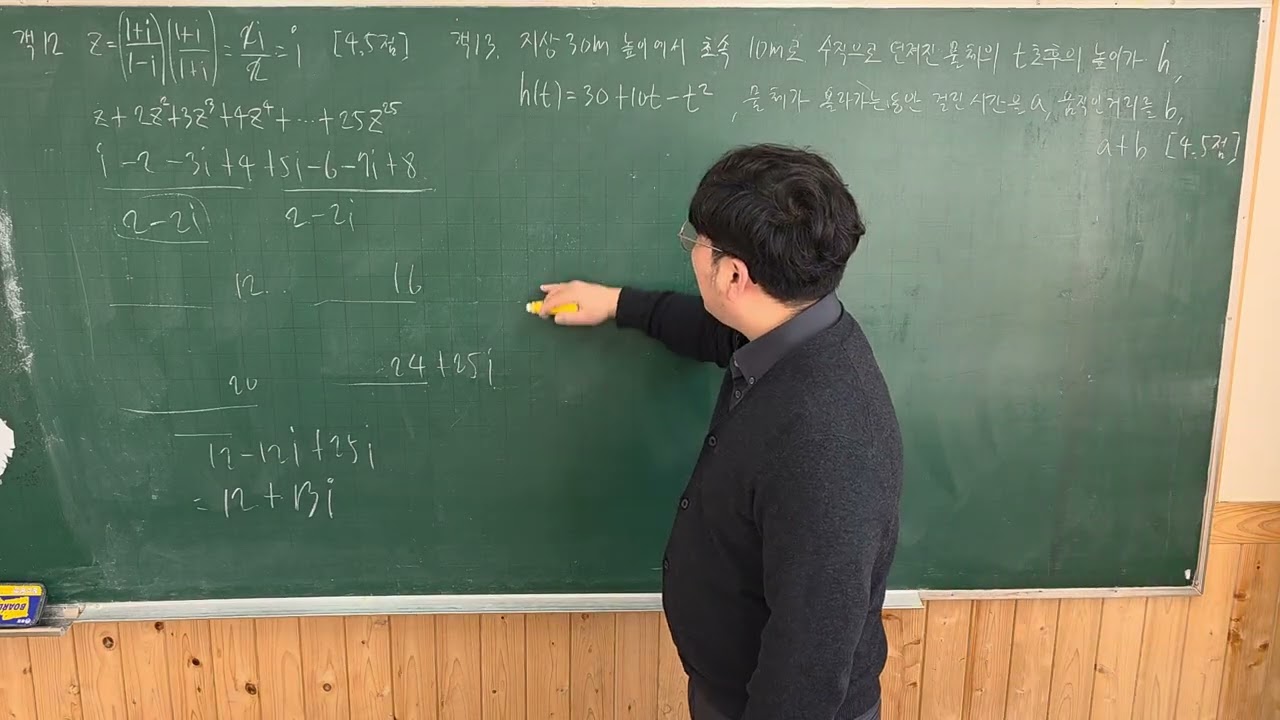 객12 z=(1+i/1-i)(1+i/1+i)=2i/2=i [4.5점]
z+2z²+3z³+4z⁴+⋯+25z²⁵
i-2-3i+4+5i-6-7i+8
2-2i 2-2i
12 16
20 24+25i
12-12i+25i
=12+13i
객13. 지상 30m 높이에서 초속 10m로 수직으로 던져진 물체의 t초후의 높이가 h,
h(t)=30+10t-t², 물체가 올라가는 동안 걸린 시간을 a, 움직인 거리를 b,
a+b [4.5점]
BOARD